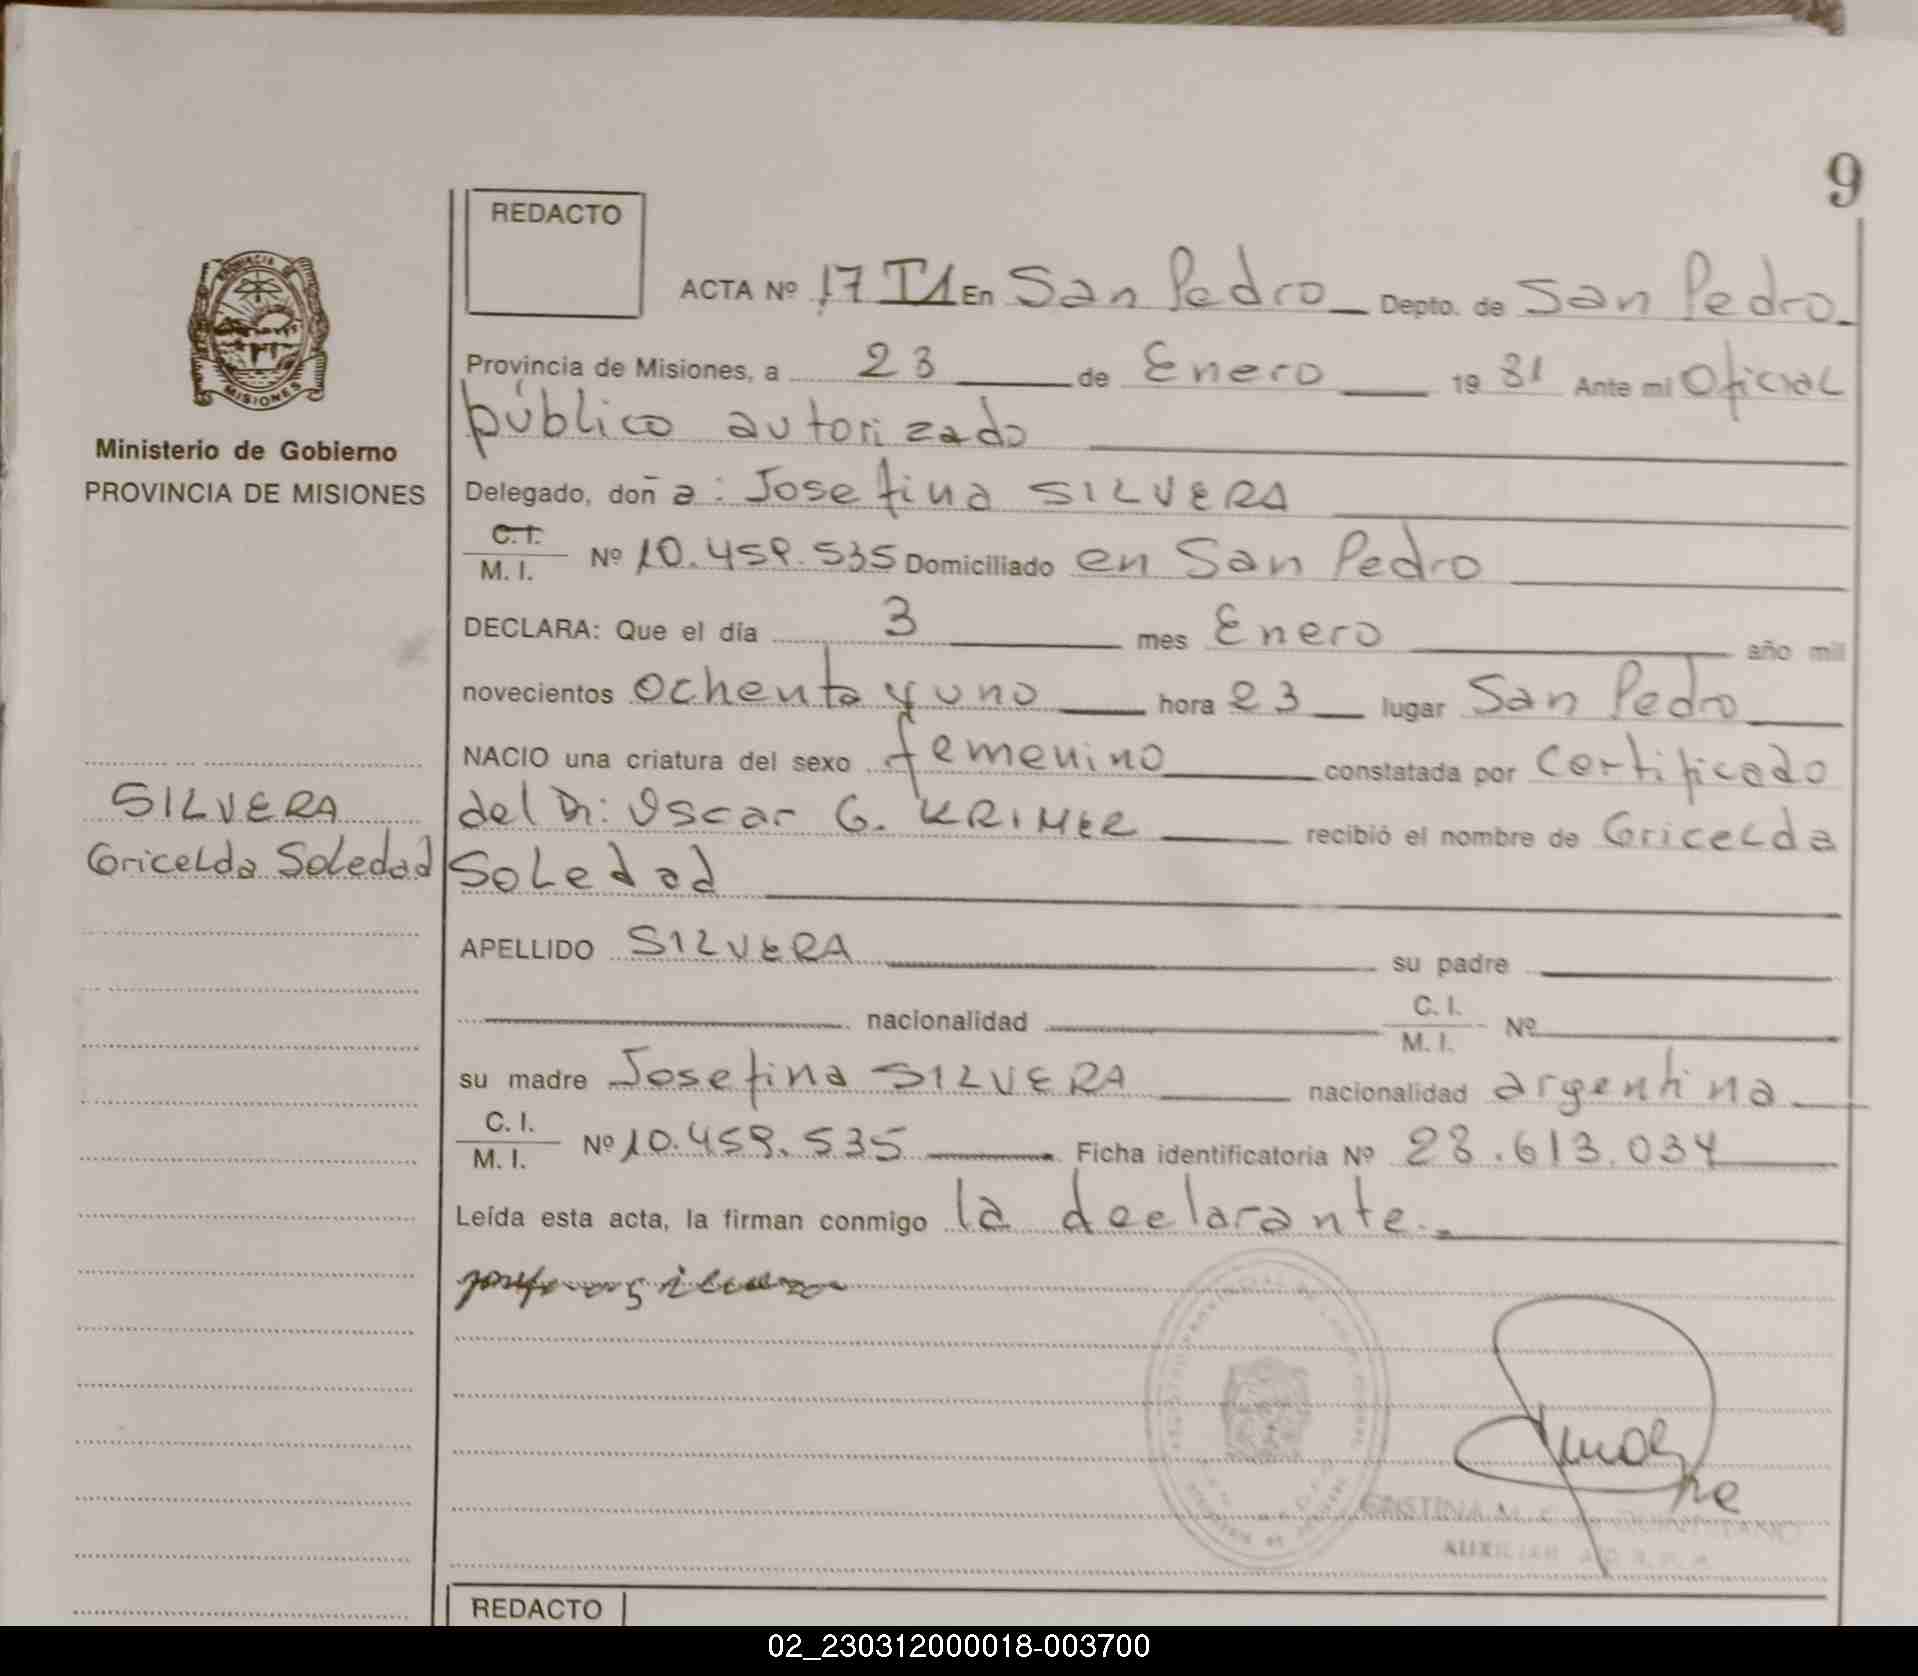 9
REDACTO
ACTA Nº 17 T1 En San Pedro Depto. de San Pedro
Provincia de Misiones, a 23 de Enero 19 81 Ante mi Oficial
público autorizado
Ministerio de Gobierno
PROVINCIA DE MISIONES
Delegado, doña: Josefina SILVERA
C.I.
M. I. Nº 10.459.535 Domiciliado en San Pedro
DECLARA: Que el día 3 mes Enero año mil
novecientos ochenta y uno hora 23 lugar San Pedro
NACIO una criatura del sexo femenino constatada por certificado
SILVERA
Gricelda Soledad
del Dr: Oscar G. KRIMER recibió el nombre de Gricelda
Soledad
APELLIDO SILVERA su padre
nacionalidad C. I.
M. I. Nº
su madre Josefina SILVERA nacionalidad argentina
C. I.
M. I. Nº 10.459.535 Ficha identificatoria Nº 28.613.034
Leída esta acta, la firman conmigo la declarante.
MISIONES
CRISTINA M.
AUXILIAR
REDACTO
02_230312000018-003700